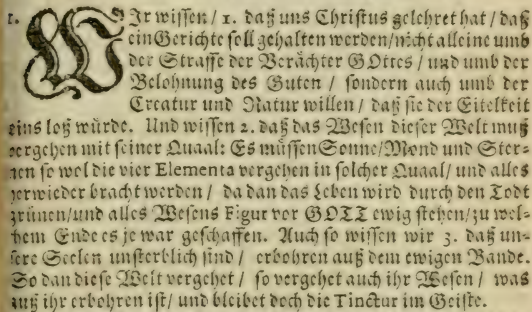 1. WJr wissen / 1. daß uns Christus gelehret hat / daß
ein Gerichte soll gehalten werden / nicht alleine umb
der Straffe der Verächter GOttes / und umb der
Belohnung des Guten / sondern auch umb der
Creatur und Natur willen / daß sie der Eitelkeit
eins loß würde. Und wissen 2. daß das Wesen dieser Welt muß
vergehen mit seiner Quaal: Es müssen Sonne / Mond und Ster-
nen so wol die vier Elementa vergehen in solcher Quaal / und alles
herwieder bracht werden / da dan das Leben wird durch den Todt
grünen / und alles Wesens Figur vor GOTT ewig stehen / zu wel-
chem Ende es je war geschaffen. Auch so wissen wir 3. daß un-
sere Seelen unsterblich sind / erbohren auß dem ewigen Bande.
So dan diese Welt vergehet / so vergehet auch ihr Wesen / was
auß ihr erbohren ist / und bleibet doch die Tinctur im Geiste.